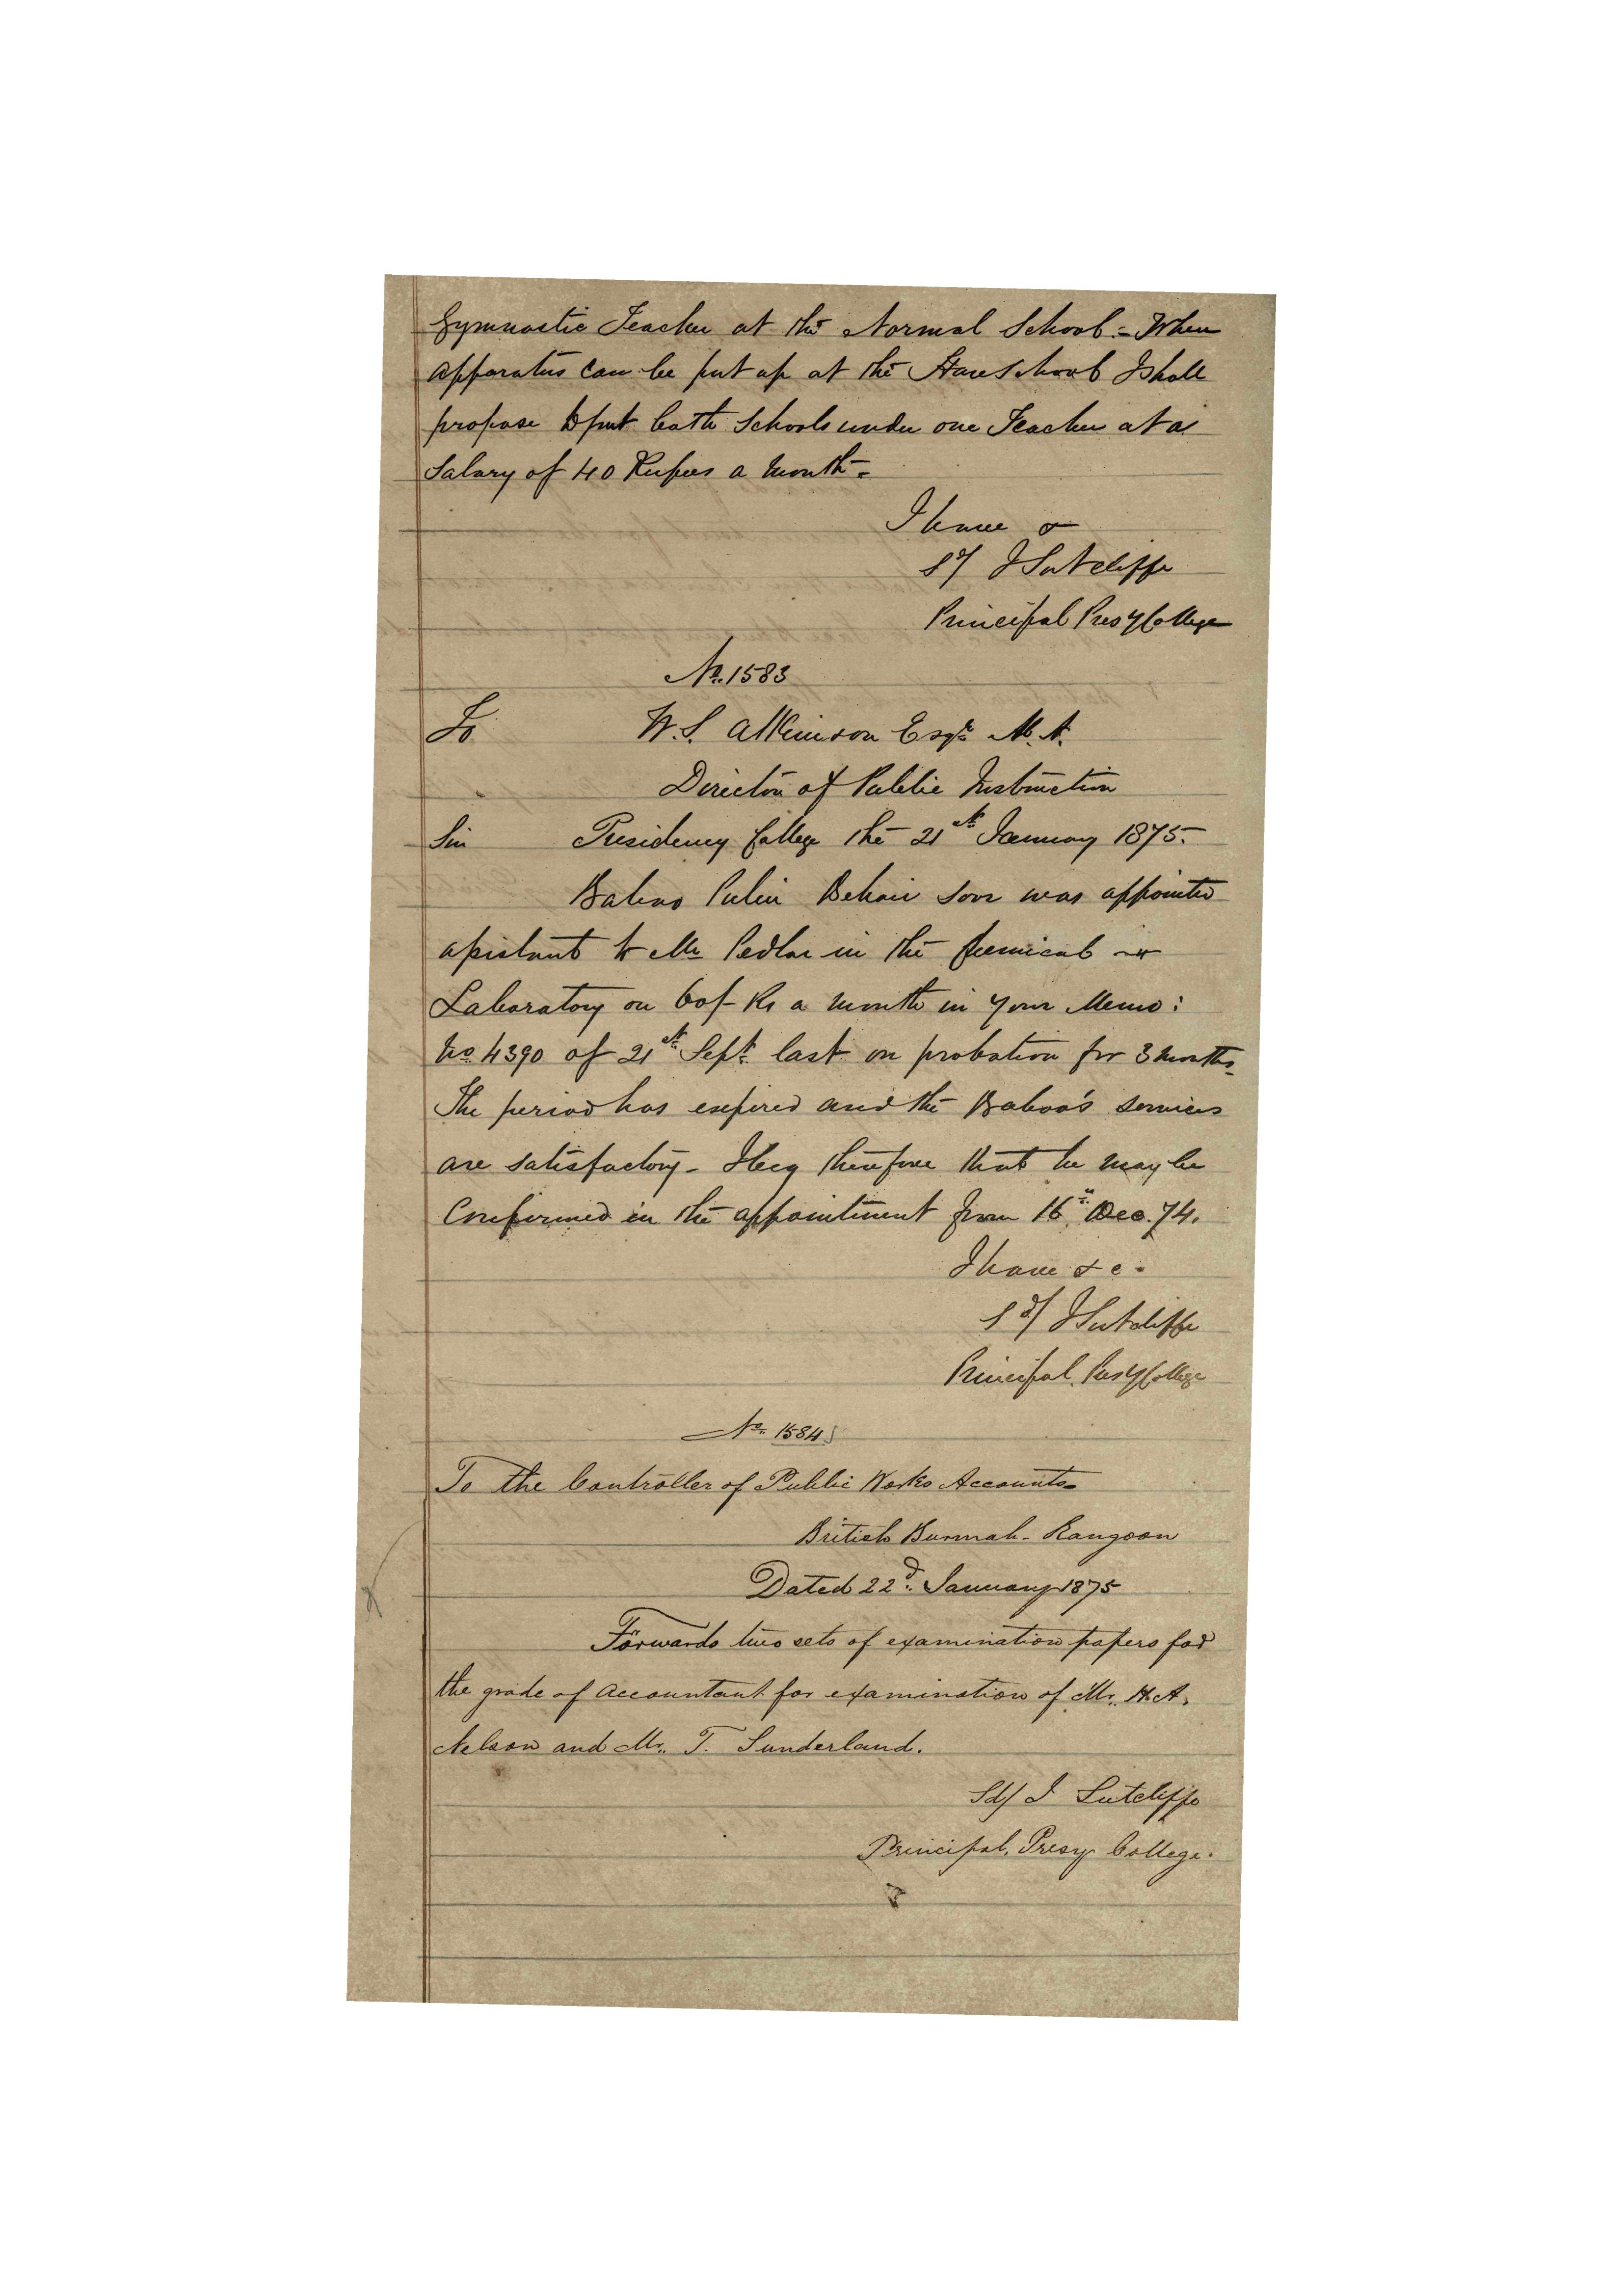 Gymnastic Teacher at the Normal School.- When
apparatus can be put up at the Hare School I shall
propose to put both Schools under one Teacher at a
Salary of 40 Rupees a month-
I have &
Sd/ J Sutcliffe
Principal Presy College
No. 1583
To W. S. Atkinson Esqr. M. A.
Director of Public Instruction
Sir Presidency College the 21st January 1875.
Baboo Pulin Behari Soor was appointed
assistant to Mr Pedlar in the Chemical
Laboratory on 60/- Rs a month in your Memo:
No 4390 of 21st Sept. last on probation for 3 months-
The period has expired and the Baboo's services
are satisfactory- I beg therefore that he may be
Confirmed in the appointment from 16th Dec. 74.
I have & c.
Sd/ J Sutcliffe
Principal, Presy College
No. 1584
To the Controller of Public Works Accounts-
British Burmah- Rangoon
Dated 22d. January 1875
Forwards two sets of examination papers for
the grade of Accountant for examination of Mr. H. A.
Nelson and Mr. T. Sunderland.
Sd/ J Sutcliffe
Principal, Presy College.